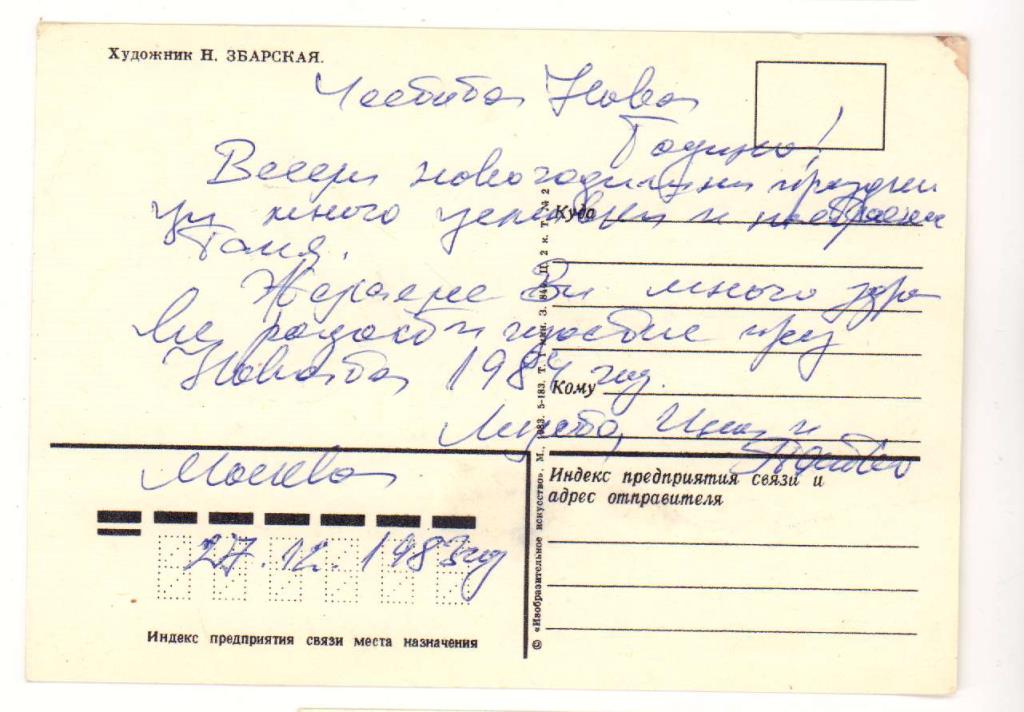 Художник Н. ЗБАРСКАЯ.
Честита Нова
Година!
Весели новогодишни празни
ци много успехи и
Таня.
Желаене Ви много здра
ве радост и щастие през
Новата 1984 год.
и
Москва
27.12.1983 год
Куда
Кому
Индекс предприятия связи и
адрес отправителя
Индекс предприятия связи места назначения
© «Изобразительное искусство». М., 1983. 5-183. Т. 1 млн. З. 840. Ц. 2 к. Т. № 2